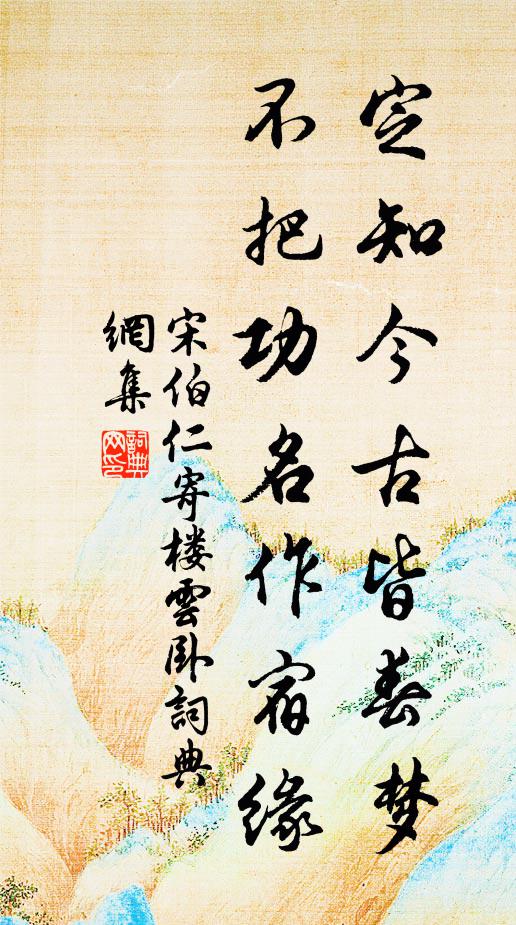 定知今古皆春梦
不把功名作宿缘
宋伯仁寄楼雲卧詞典
網集
詞典
网印